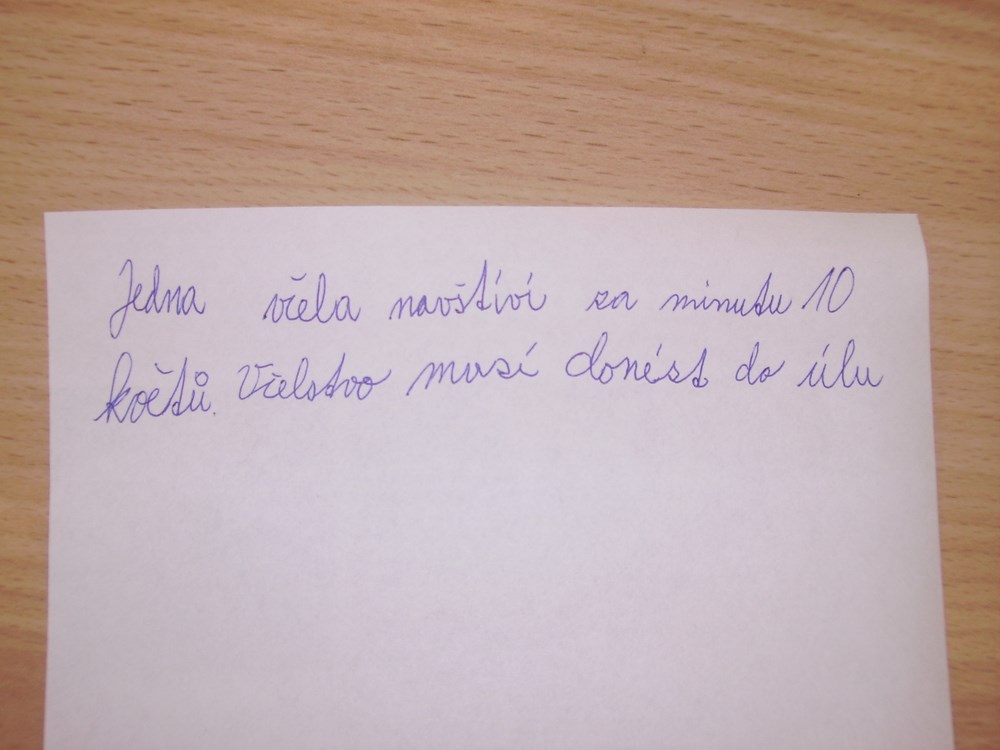 Jedna včela navštíví za minutu 10
květů. Včelstvo musí donést do úlu